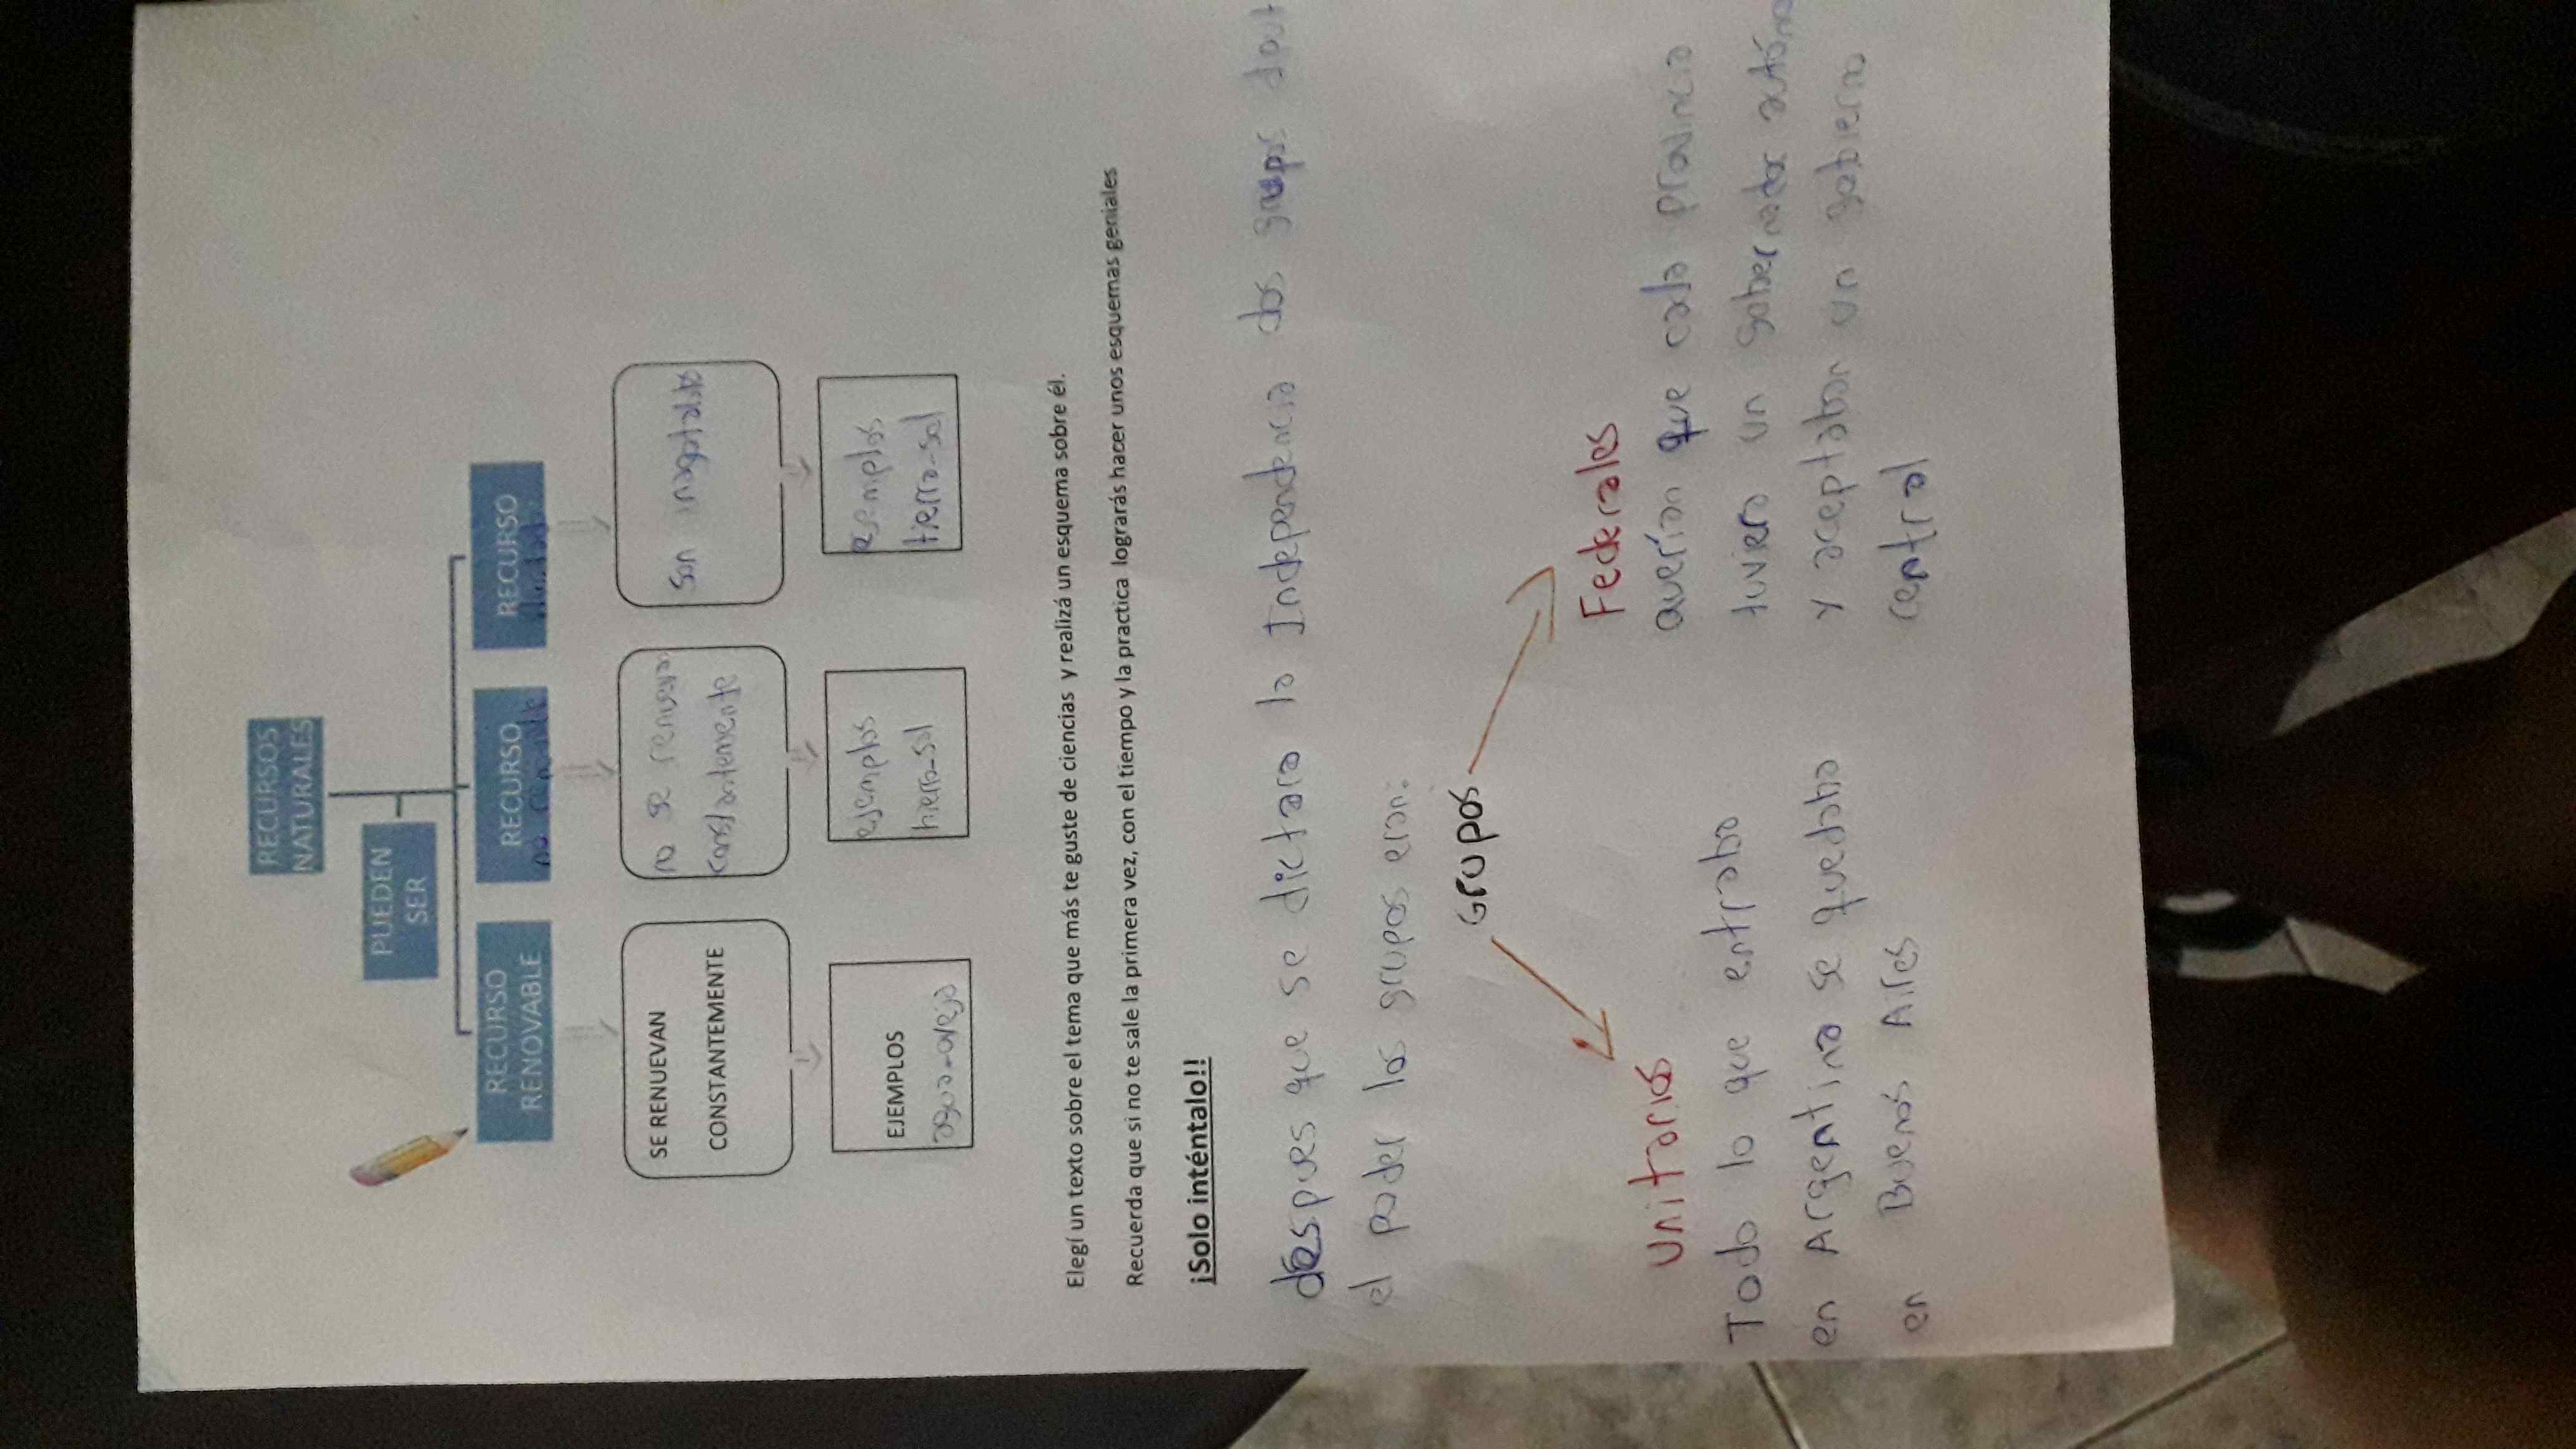 RECURSOS
NATURALES
PUEDEN
SER
RECURSO
RENOVABLE
RECURSO
no
RECURSO
SE RENUEVAN
CONSTANTEMENTE
no se renueva
constantemente
Son
EJEMPLOS
agua-oveja
ejemplos
hierro-sal
ejemplos
tierra-sol
Elegí un texto sobre el tema que más te guste de ciencias y realizá un esquema sobre él.
Recuerda que si no te sale la primera vez, con el tiempo y la practica lograrás hacer unos esquemas geniales
¡Solo inténtalo!!
despues que se dictara la Independencia dos grupos
el poder los grupos eran:
Grupos
Unitarios
Todo lo que entraba
en Argentina se quedaba
en Buenos Aires
Federales
querían que cada provincia
tuviera un gobernador
y aceptaban un gobierno
central